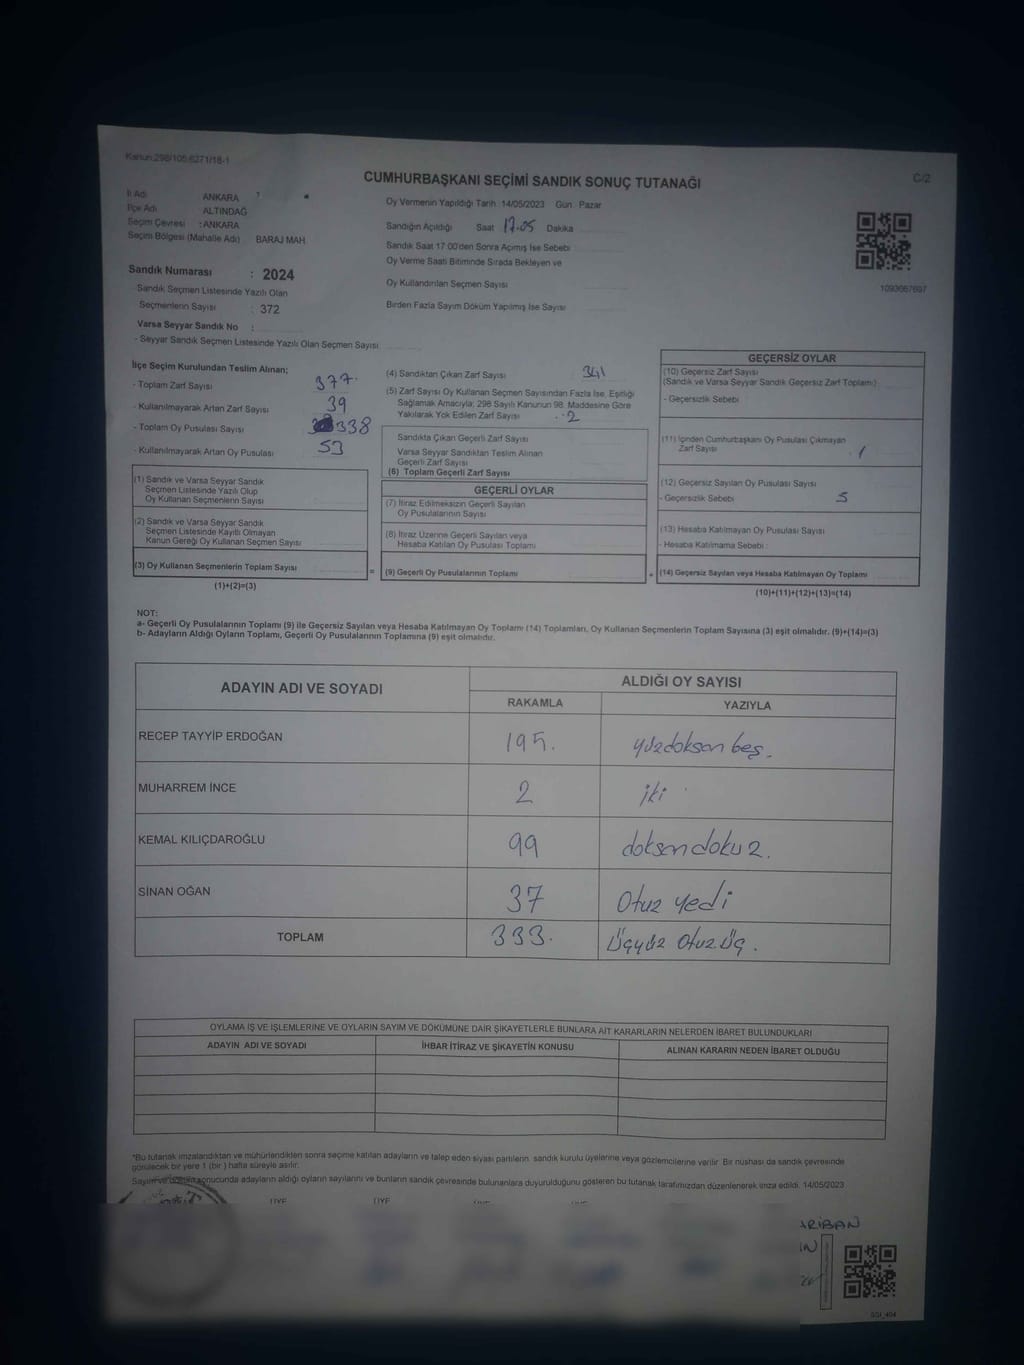 Kanun:298/105,6271/18-1
C/2
CUMHURBAŞKANI SEÇİMİ SANDIK SONUÇ TUTANAĞI
İl Adı ANKARA
İlçe Adı ALTINDAĞ
Seçim Çevresi : ANKARA
Seçim Bölgesi (Mahalle Adı) BARAJ MAH.
Sandık Numarası : 2024
- Sandık Seçmen Listesinde Yazılı Olan
Seçmenlerin Sayısı : 372
Varsa Seyyar Sandık No :
- Seyyar Sandık Seçmen Listesinde Yazılı Olan Seçmen Sayısı
Oy Vermenin Yapıldığı Tarih :14/05/2023 Gün : Pazar
Sandığın Açıldığı Saat 17.05 Dakika
Sandık Saat 17:00'den Sonra Açılmış İse Sebebi
Oy Verme Saati Bitiminde Sırada Bekleyen ve
Oy Kullandırılan Seçmen Sayısı
Birden Fazla Sayım Döküm Yapılmış İse Sayısı
1093667697
İlçe Seçim Kurulundan Teslim Alınan;
- Toplam Zarf Sayısı 377.
- Kullanılmayarak Artan Zarf Sayısı 39
- Toplam Oy Pusulası Sayısı 338
- Kullanılmayarak Artan Oy Pusulası 53
(1) Sandık ve Varsa Seyyar Sandık
Seçmen Listesinde Yazılı Olup
Oy Kullanan Seçmenlerin Sayısı
(2) Sandık ve Varsa Seyyar Sandık
Seçmen Listesinde Kayıtlı Olmayan
Kanun Gereği Oy Kullanan Seçmen Sayısı
(3) Oy Kullanan Seçmenlerin Toplam Sayısı
(1)+(2)=(3)
(4) Sandıktan Çıkan Zarf Sayısı 341
(5) Zarf Sayısı Oy Kullanan Seçmen Sayısından Fazla İse, Eşitliği
Sağlamak Amacıyla; 298 Sayılı Kanunun 98. Maddesine Göre
Yakılarak Yok Edilen Zarf Sayısı 2
Sandıkta Çıkan Geçerli Zarf Sayısı
Varsa Seyyar Sandıktan Teslim Alınan
Geçerli Zarf Sayısı
(6) Toplam Geçerli Zarf Sayısı
GEÇERLİ OYLAR
(7) İtiraz Edilmeksizin Geçerli Sayılan
Oy Pusulalarının Sayısı
(8) İtiraz Üzerine Geçerli Sayılan veya
Hesaba Katılan Oy Pusulası Toplamı
= (9) Geçerli Oy Pusulalarının Toplamı
GEÇERSİZ OYLAR
(10) Geçersiz Zarf Sayısı
(Sandık ve Varsa Seyyar Sandık Geçersiz Zarf Toplamı)
- Geçersizlik Sebebi
(11) İçinden Cumhurbaşkanı Oy Pusulası Çıkmayan
Zarf Sayısı 1
(12) Geçersiz Sayılan Oy Pusulası Sayısı
- Geçersizlik Sebebi 5
(13) Hesaba Katılmayan Oy Pusulası Sayısı
- Hesaba Katılmama Sebebi :
+ (14) Geçersiz Sayılan veya Hesaba Katılmayan Oy Toplamı
(10)+(11)+(12)+(13)=(14)
NOT:
a- Geçerli Oy Pusulalarının Toplamı (9) ile Geçersiz Sayılan veya Hesaba Katılmayan Oy Toplamı (14) Toplamları, Oy Kullanan Seçmenlerin Toplam Sayısına (3) eşit olmalıdır. (9)+(14)=(3)
b- Adayların Aldığı Oyların Toplamı, Geçerli Oy Pusulalarının Toplamına (9) eşit olmalıdır.
ADAYIN ADI VE SOYADI ALDIĞI OY SAYISI
RAKAMLA YAZIYLA
RECEP TAYYİP ERDOĞAN 195. yüzdoksan beş.
MUHARREM İNCE 2 iki
KEMAL KILIÇDAROĞLU 99 doksan dokuz.
SİNAN OĞAN 37 Otuz yedi
TOPLAM 333. Üçyüz Otuz Üç.
OYLAMA İŞ VE İŞLEMLERİNE VE OYLARIN SAYIM VE DÖKÜMÜNE DAİR ŞİKAYETLERLE BUNLARA AİT KARARLARIN NELERDEN İBARET BULUNDUKLARI
ADAYIN ADI VE SOYADI İHBAR İTİRAZ VE ŞİKAYETİN KONUSU ALINAN KARARIN NEDEN İBARET OLDUĞU
*Bu tutanak imzalandıktan ve mühürlendikten sonra seçime katılan adayların ve talep eden siyasi partilerin, sandık kurulu üyelerine veya gözlemcilerine verilir. Bir nüshası da sandık çevresinde
görülecek bir yere 1 (bir ) hafta süreyle asılır.
Sayım ve döküm sonucunda adayların aldığı oyların sayılarını ve bunların sandık çevresinde bulunanlara duyurulduğunu gösteren bu tutanak tarafımızdan düzenlenerek imza edildi. 14/05/2023
ÜYE ÜYE
ARİBAN
IN